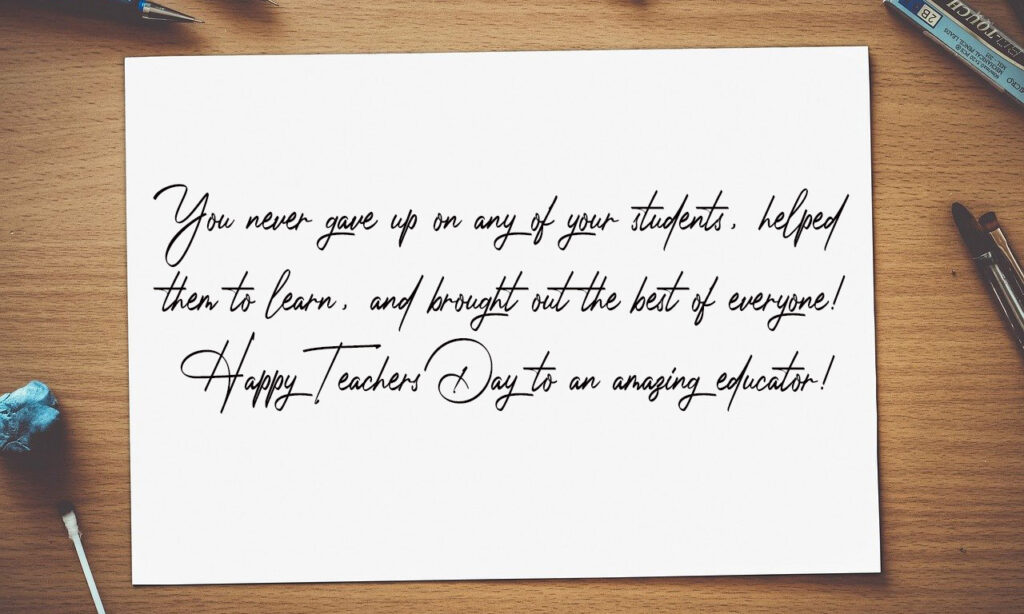 You never gave up on any of your students, helped
them to learn, and brought out the best of everyone!
Happy Teachers Day to an amazing educator!
2B
TOUCH
MECHANICAL PENCIL LEADS